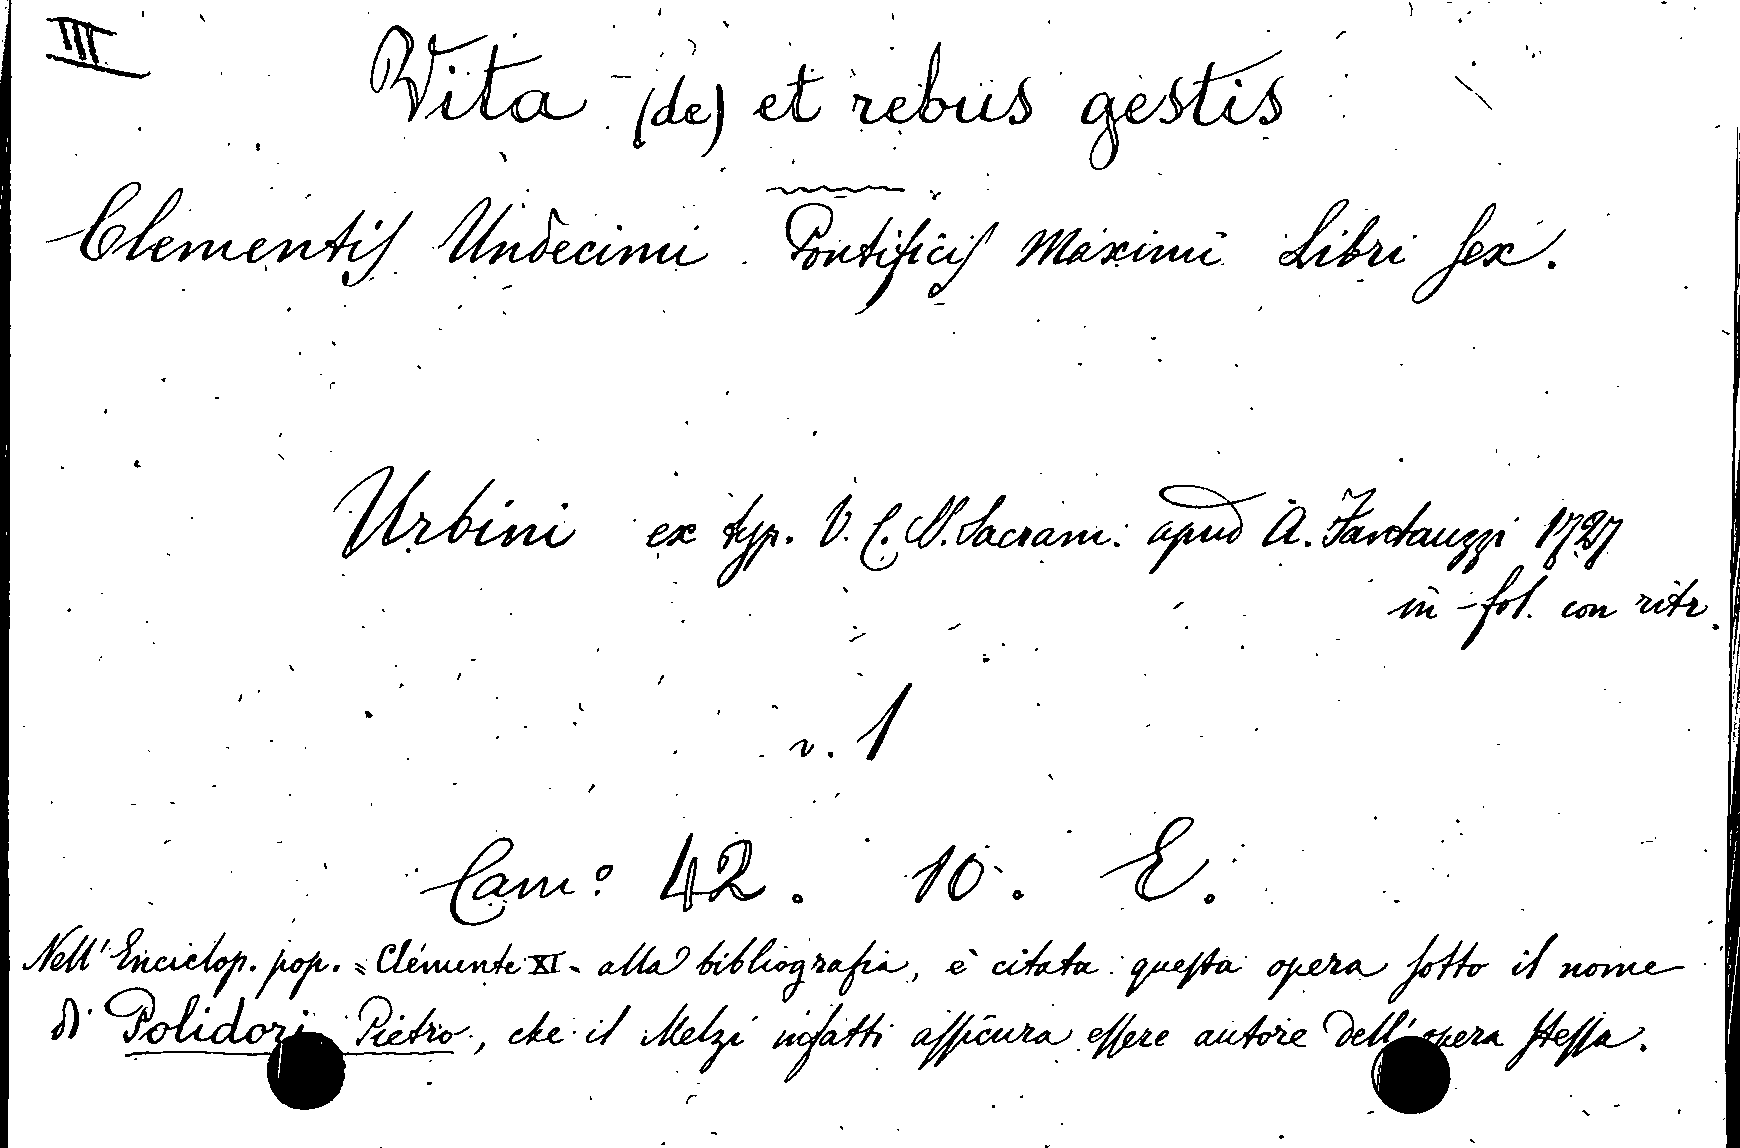 III
Vita (de) et rebus gestis
Clementis Undecimi Pontificis Maximi Libri sex.
Urbini ex typ. V. C. V. Sacram: apud A. Fantauzzi 1727
in-fol. con ritr.
v. 1
Cam: 42. 10. E.
Nell' Enciclop. pop. = Clemente XI - alla bibliografia, è citata questa opera sotto il nome
di Polidori Pietro, che il Melzi infatti assicura essere autore dell' opera stessa.